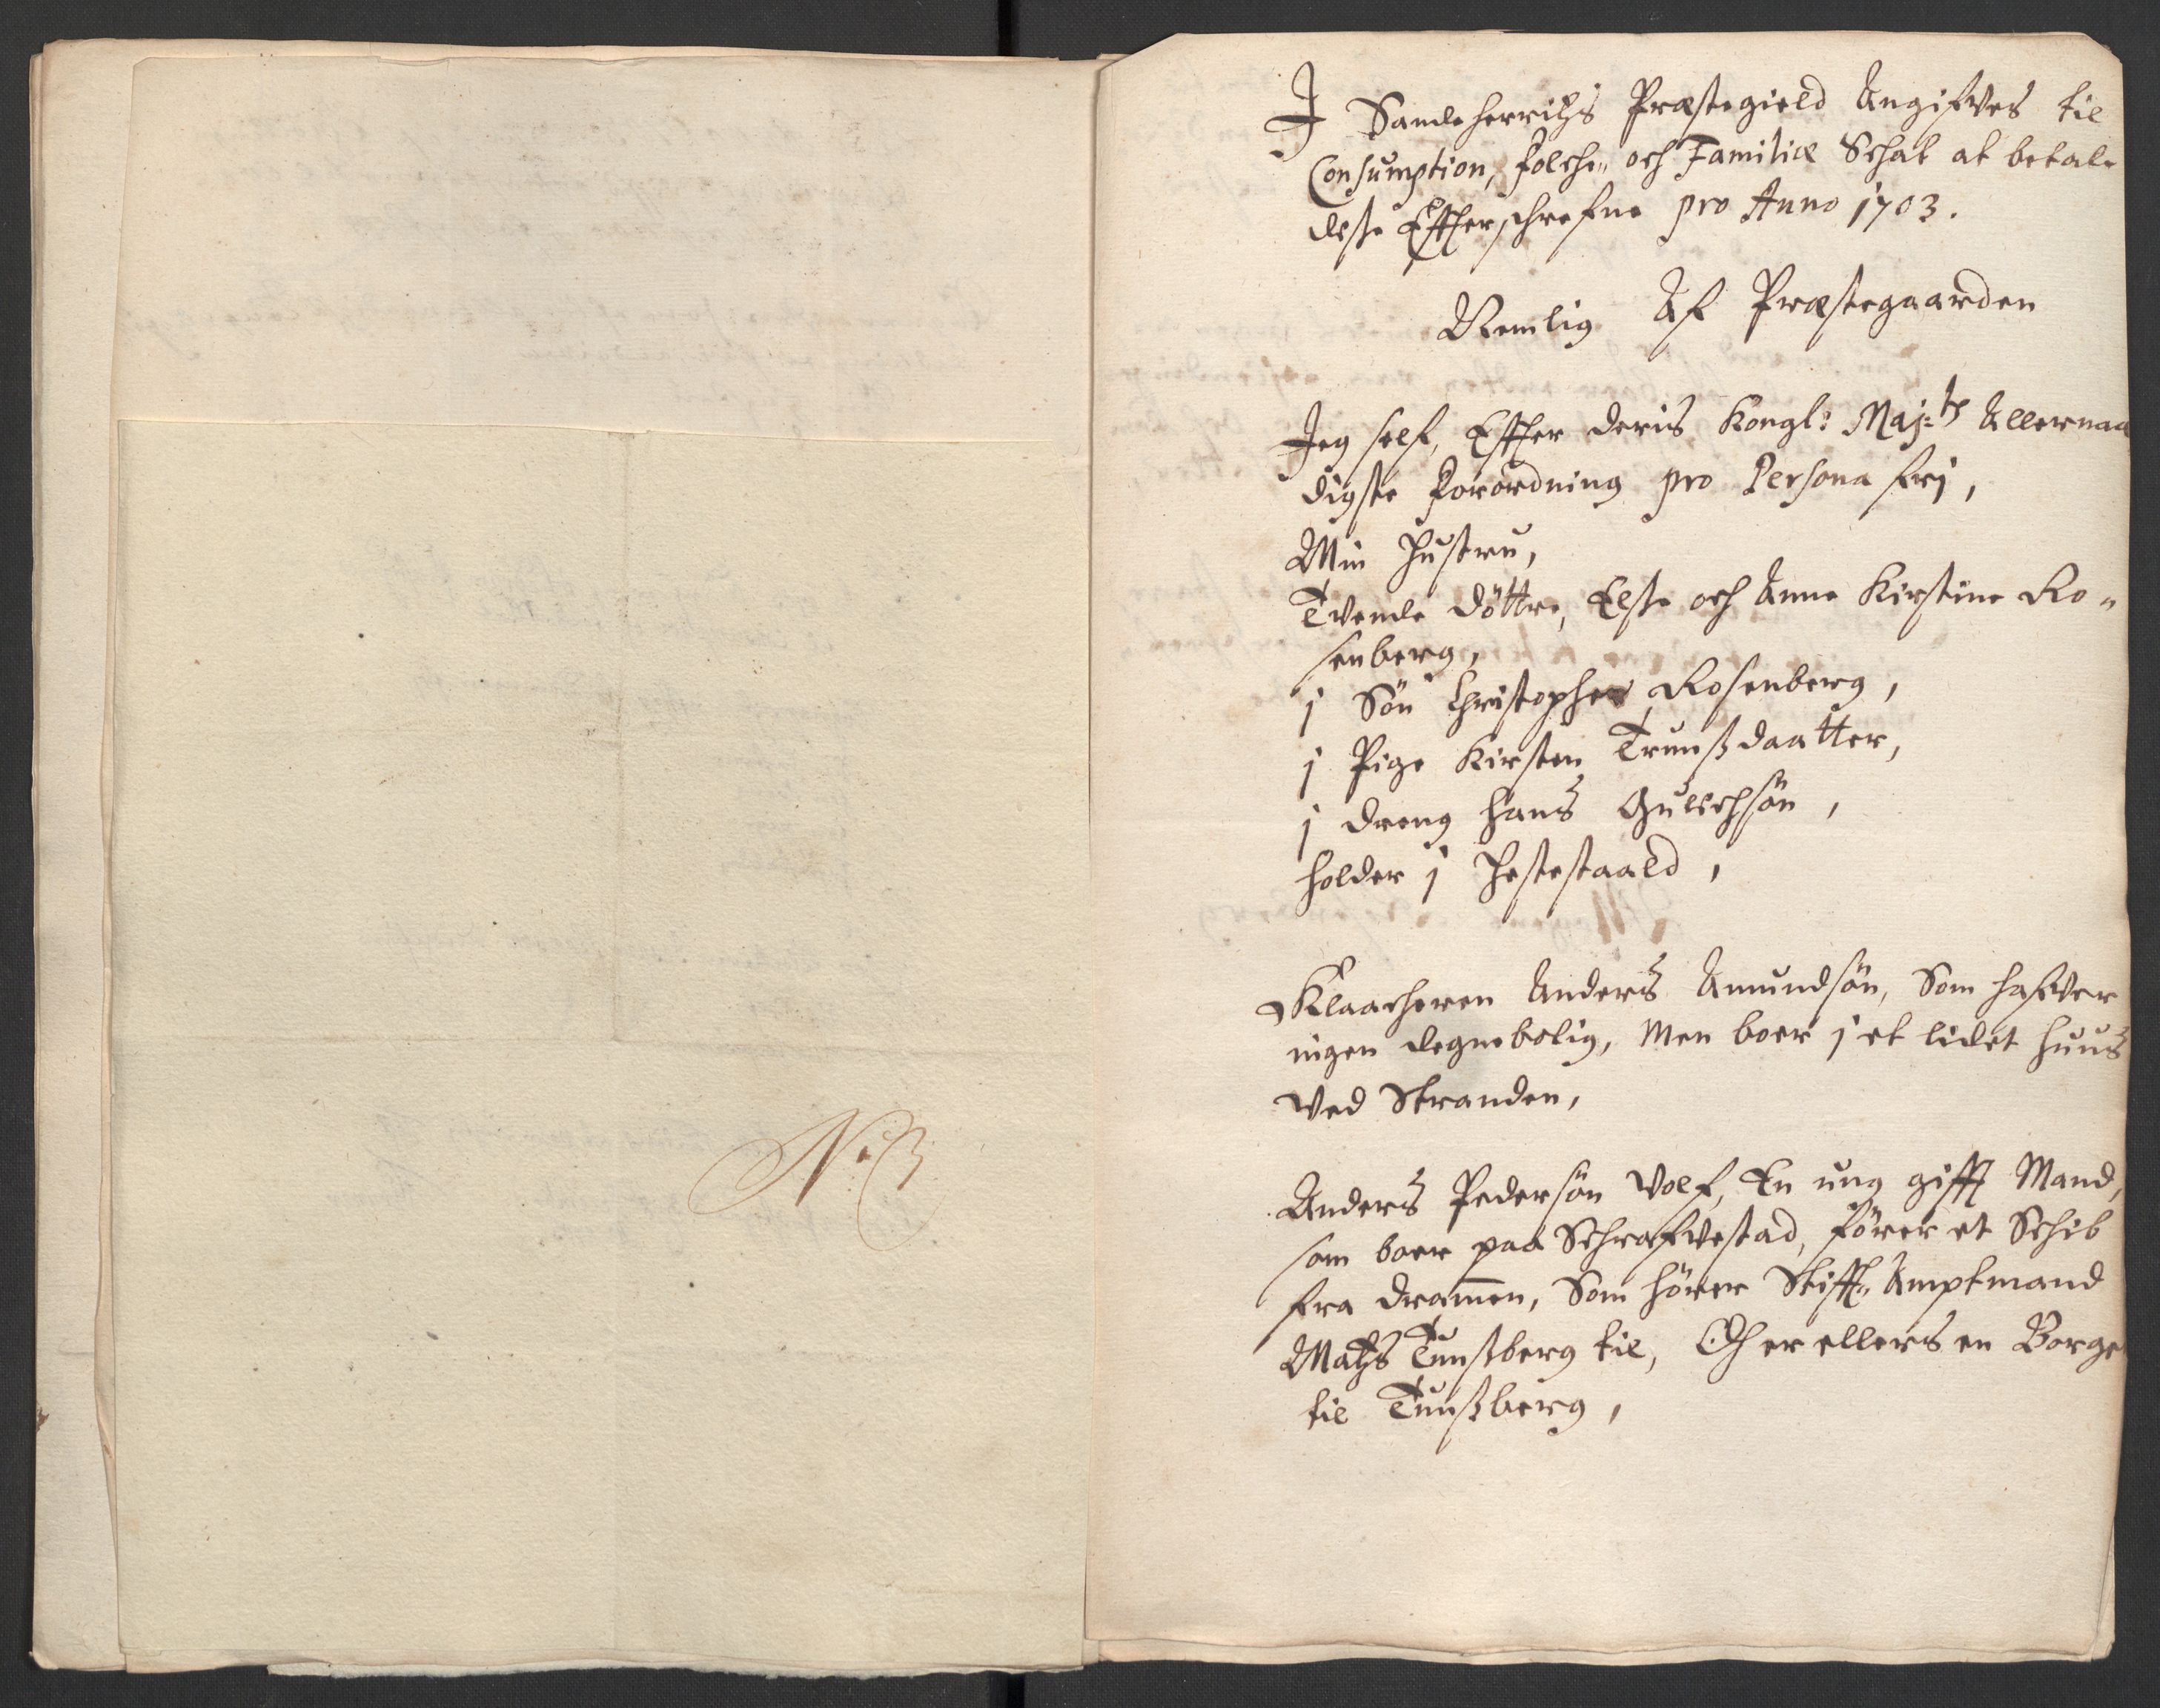 N: 3
I Sandeherritzs Præstegield Angifves til
Consumption, folche„ och Familiæ Schat at betale
desse Effterschrefne pro Anno 1703.
Nemlig Af Præstegaarden
Jeg self, Effter deris Kongl: Maj:ts Allernaa
digste forordning pro Persona frj,
Min Hustru,
Tvende döttre, Else och Anne Kirstine Ro„
senberg,
j Sön Christopher Rosenberg,
j Pige Kirsten Trunsdaatter,
j dreng Hans Gulichsön,
holder j Hestestaald,
Klaacheren Anders Amundsön, Som hafver
ingen degnebolig, Men boer j et lidet huus
ved Stranden,
Anders Pedersön Wolf, En ung gifft Mand,
som boer paa Schrafvestad, förer et Schib
fra Dramen, Som hörer Stifft„ Amptmand
Matzs Tunsberg til, Och er ellers en Borge
til Tunsberg,